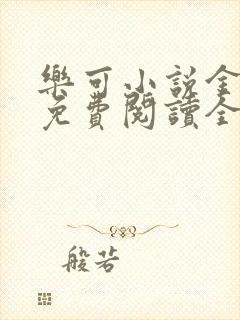 樂可小說全
免費閱讀全
般若